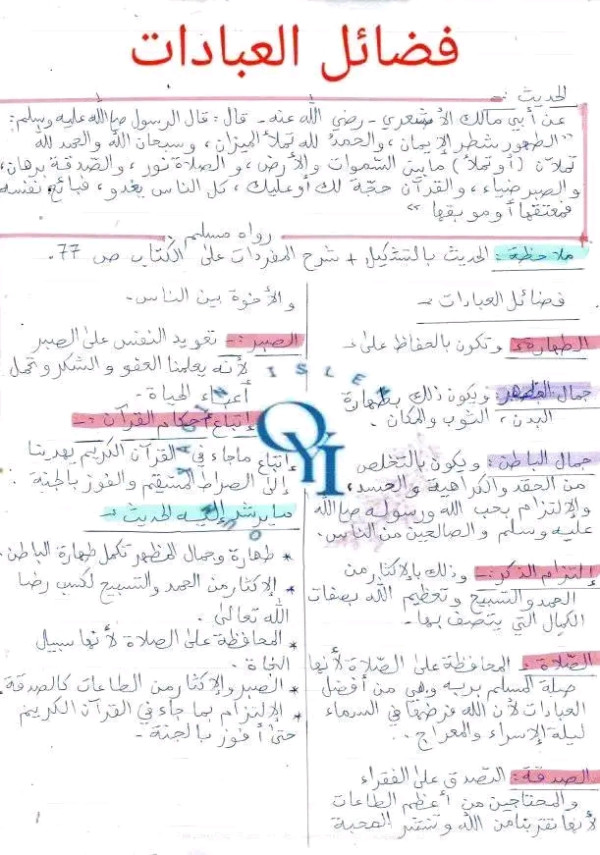 فضائل العبادات
الحديث :-
عن أبي مالك الأشعري - رضي الله عنه - قال : قال الرسول صلى الله عليه وسلم :
"الطهور شطر الإيمان ، والحمد لله تملأ الميزان ، وسبحان الله والحمد لله
تملآن (أو تملأ) ما بين السموات والأرض ، والصلاة نور ، والصدقة برهان ،
والصبر ضياء ، والقرآن حجة لك أو عليك ، كل الناس يغدو ، فبائع نفسه
فمعتقها أو موبقها "
رواه مسلم .
ملاحظة : الحديث بالتشكيل + شرح المفردات على الكتاب ص 77 .
فضائل العبادات :-
الطهارة : وتكون بالحفاظ على :-
جمال المظهر : ويكون ذلك بطهارة
البدن ، الثوب والمكان .
جمال الباطن : ويكون بالتخلص
من الحقد والكراهية والحسد ،
والإلتزام بحب الله ورسوله صلى الله
عليه وسلم والصالحين من الناس .
إلتزام الذكر :- وذلك بالإكثار من
الحمد والتسبيح وتعظيم الله بصفات
الكمال التي يتصف بها -
الصلاة : المحافظة على الصلاة لأنها
صلة المسلم بربه وهي من أفضل
العبادات لأن الله فرضها في السماء
ليلة الإسراء والمعراج .
الصدقة : التصدق على الفقراء
والمحتاجين من أعظم الطاعات
لأنها تقربنا من الله وتنشر المحبة
والأخوة بين الناس -
الصبر :- تعويد النفس على الصبر
لأنه يعلمنا العفو والشكر وتحمل
أعباء الحياة -
إتباع أحكام القرآن :-
إتباع ما جاء في القرآن الكريم يهدينا
إلى الصراط المستقيم والفوز بالجنة .
ما يرشد إليه الحديث :-
* طهارة وجمال المظهر تكمل طهارة الباطن .
* الإكثار من الحمد والتسبيح لكسب رضا
الله تعالى .
* المحافظة على الصلاة لأنها سبيل
النجاة .
* الصبر والإكثار من الطاعات كالصدقة .
* الإلتزام بما جاء في القرآن الكريم
حتى أفوز بالجنة -
1